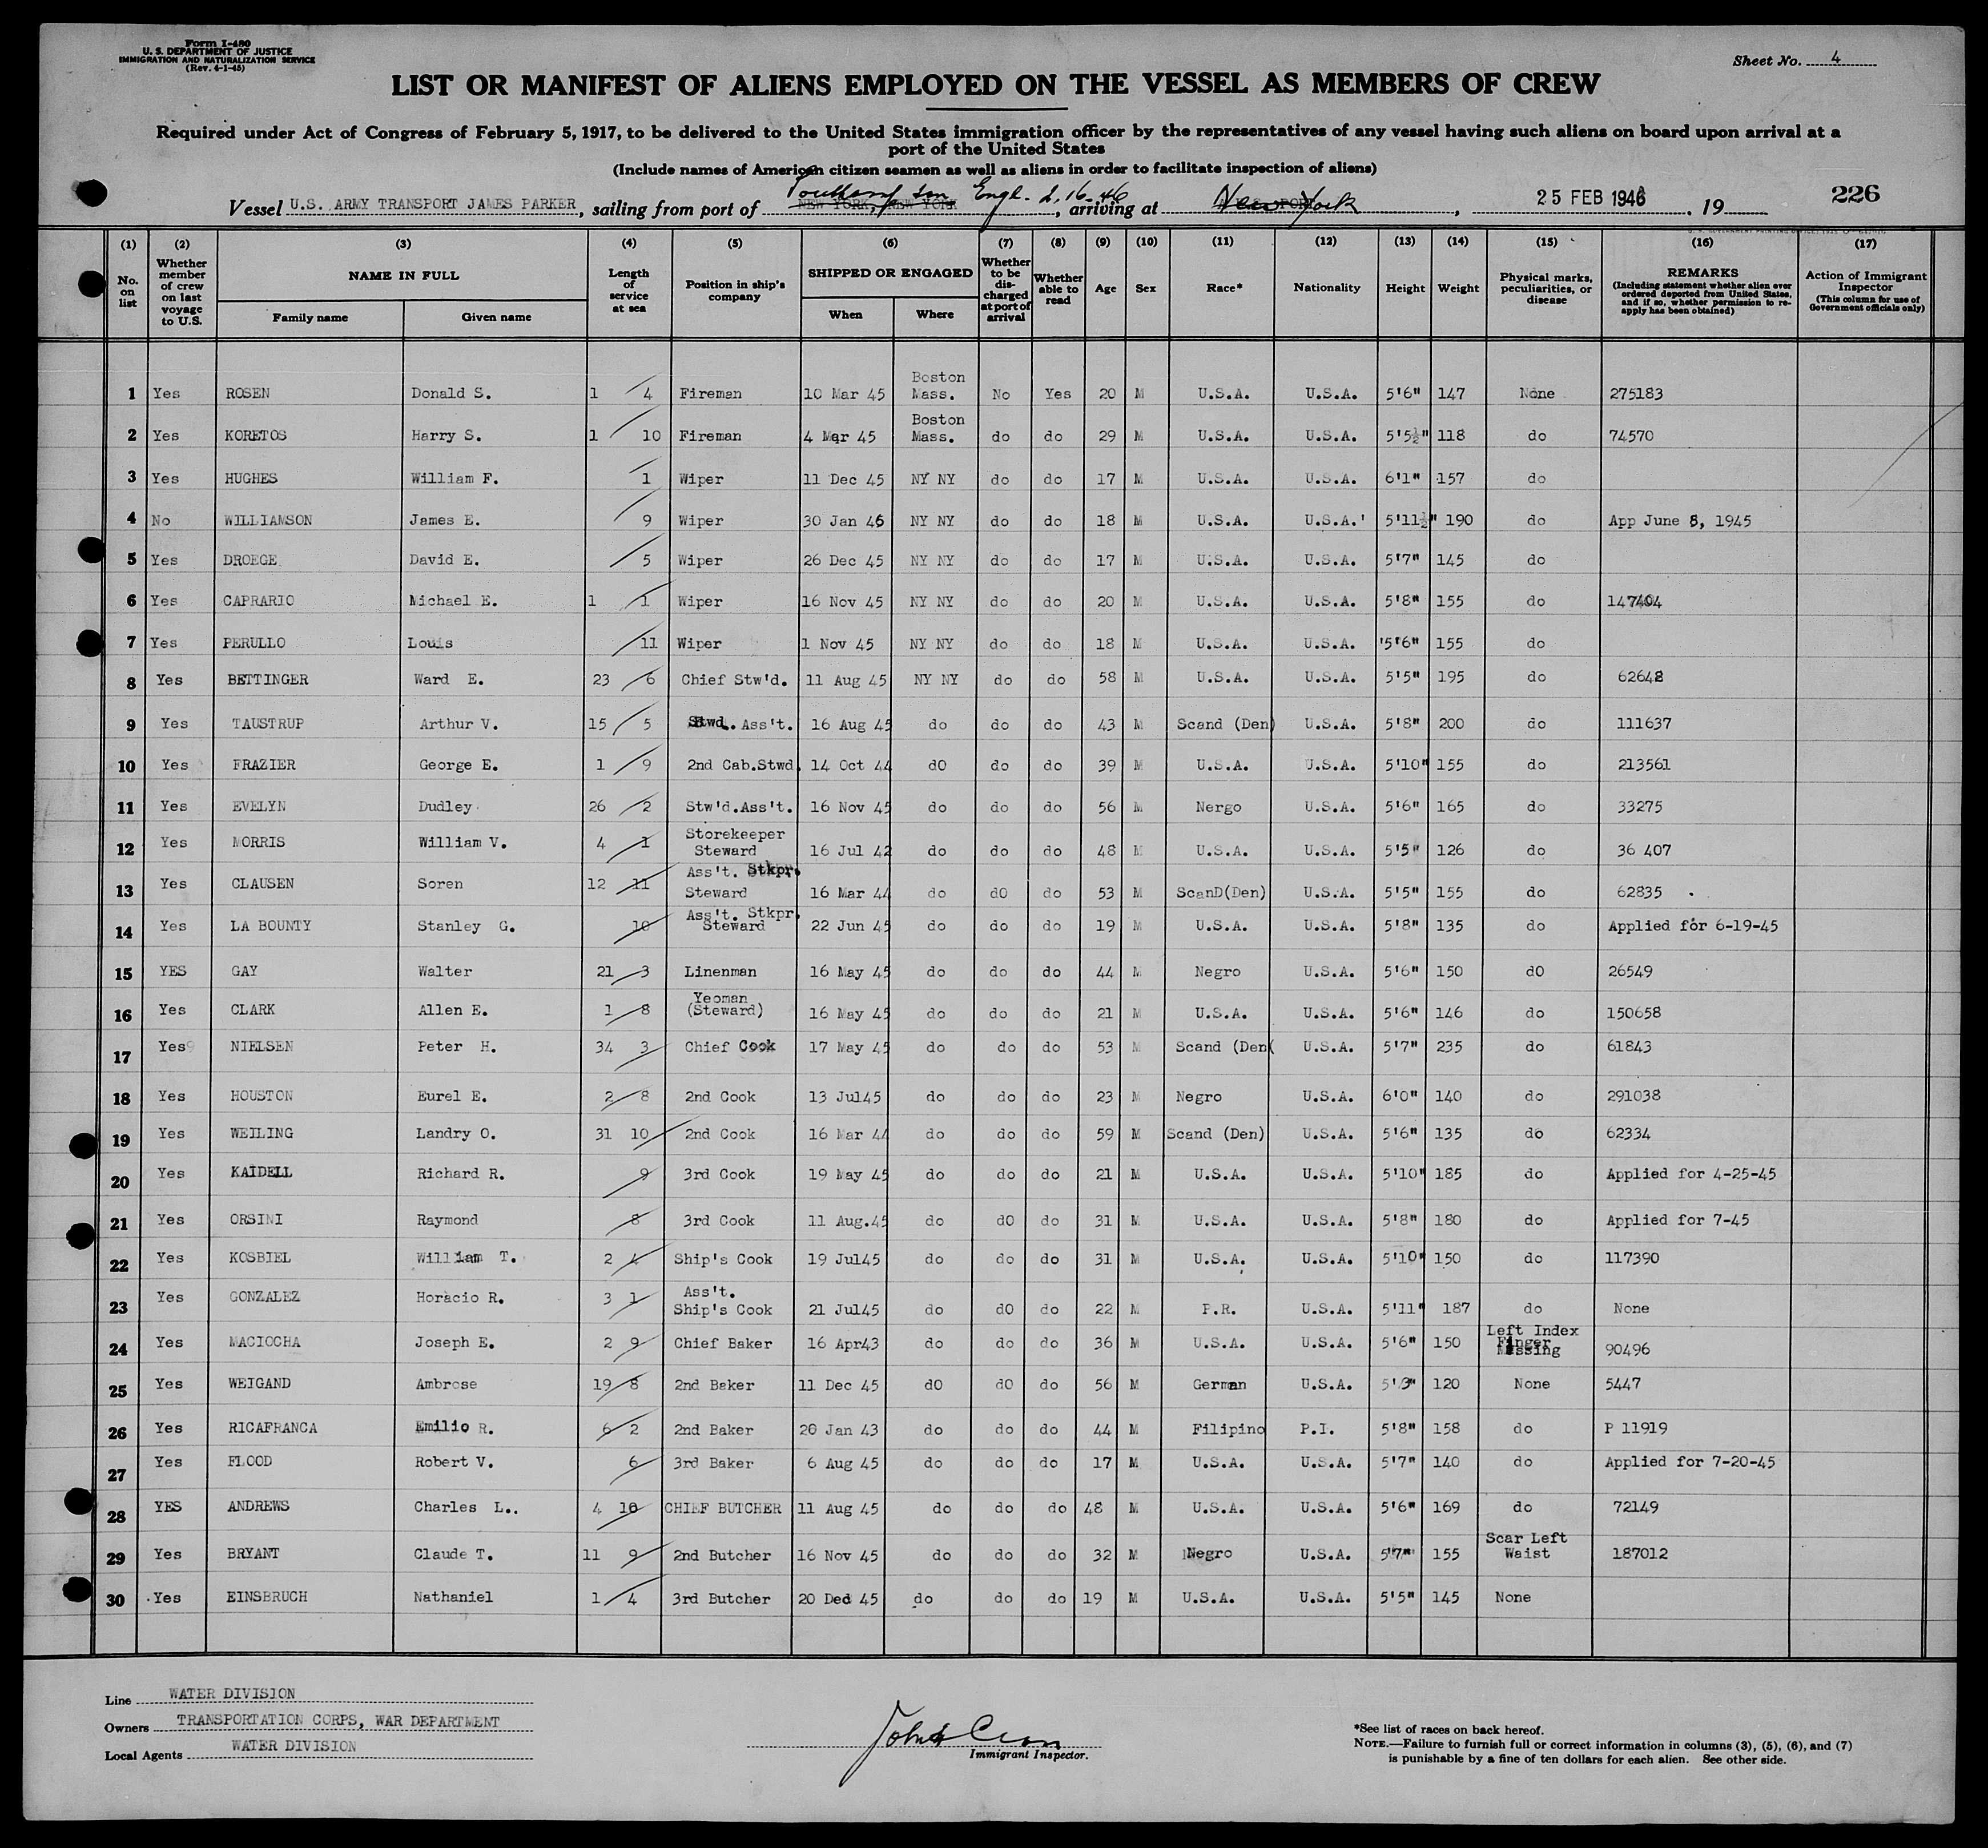 Form I-480
U. S. DEPARTMENT OF JUSTICE
IMMIGRATION AND NATURALIZATION SERVICE
(Rev. 4-1-45)
Sheet No. 4
LIST OR MANIFEST OF ALIENS EMPLOYED ON THE VESSEL AS MEMBERS OF CREW
Required under Act of Congress of February 5, 1917, to be delivered to the United States immigration officer by the representatives of any vessel having such aliens on board upon arrival at a
port of the United States
(Include names of American citizen seamen as well as aliens in order to facilitate inspection of aliens)
Vessel U.S. ARMY TRANSPORT JAMES PARKER, sailing from port of Southampton Engl. 2.16.46, arriving at New York, 25 FEB 1946, 19
226
(1) (2) (3) (4) (5) (6) (7) (8) (9) (10) (11) (12) (13) (14) (15) (16) (17)
No. on list | Whether member of crew on last voyage to U.S. | NAME IN FULL | Family name | Given name | Length of service at sea | Position in ship's company | SHIPPED OR ENGAGED | When | Where | Whether to be discharged at port of arrival | Whether able to read | Age | Sex | Race* | Nationality | Height | Weight | Physical marks, peculiarities, or disease | REMARKS (Including statement whether alien ever ordered deported from United States, and if so, whether permission to reapply has been obtained) | Action of Immigrant Inspector (This column for use of Government officials only)
1 Yes ROSEN Donald S. 1 / 4 Fireman 10 Mar 45 Boston Mass. No Yes 20 M U.S.A. U.S.A. 5'6" 147 None 275183
2 Yes KORETOS Harry S. 1 / 10 Fireman 4 Mar 45 Boston Mass. do do 29 M U.S.A. U.S.A. 5'5½" 118 do 74570
3 Yes HUGHES William F. / 1 Wiper 11 Dec 45 NY NY do do 17 M U.S.A. U.S.A. 6'1" 157 do
4 No WILLIAMSON James E. / 9 Wiper 30 Jan 46 NY NY do do 18 M U.S.A. U.S.A.' 5'11½" 190 do App June 8, 1945
5 Yes DROEGE David E. / 5 Wiper 26 Dec 45 NY NY do do 17 M U.S.A. U.S.A. 5'7" 145 do
6 Yes CAPRARIO Michael E. 1 / 1 Wiper 16 Nov 45 NY NY do do 20 M U.S.A. U.S.A. 5'8" 155 do 147404
7 Yes PERULLO Louis / 11 Wiper 1 Nov 45 NY NY do do 18 M U.S.A. U.S.A. '5'6" 155 do
8 Yes BETTINGER Ward E. 23 / 6 Chief Stw'd. 11 Aug 45 NY NY do do 58 M U.S.A. U.S.A. 5'5" 195 do 62642
9 Yes TAUSTRUP Arthur V. 15 / 5 Stwd. Ass't. 16 Aug 45 do do do 43 M Scand (Den) U.S.A. 5'8" 200 do 111637
10 Yes FRAZIER George E. 1 / 9 2nd Cab.Stwd. 14 Oct 44 dO do do 39 M U.S.A. U.S.A. 5'10" 155 do 213561
11 Yes EVELYN Dudley 26 / 2 Stw'd.Ass't. 16 Nov 45 do do do 56 M Nergo U.S.A. 5'6" 165 do 33275
12 Yes MORRIS William V. 4 / 1 Storekeeper Steward 16 Jul 42 do do do 48 M U.S.A. U.S.A. 5'5" 126 do 36 407
13 Yes CLAUSEN Soren 12 / 11 Ass't. Stkpr. Steward 16 Mar 44 do dO do 53 M ScanD(Den) U.S.A. 5'5" 155 do 62835
14 Yes LA BOUNTY Stanley G. / 10 Ass't. Stkpr. Steward 22 Jun 45 do do do 19 M U.S.A. U.S.A. 5'8" 135 do Applied for 6-19-45
15 YES GAY Walter 21 / 3 Linenman 16 May 45 do do do 44 M Negro U.S.A. 5'6" 150 dO 26549
16 Yes CLARK Allen E. 1 / 8 Yeoman (Steward) 16 May 45 do do do 21 M U.S.A. U.S.A. 5'6" 146 do 150658
17 Yes NIELSEN Peter H. 34 / 3 Chief Cook 17 May 45 do do do 53 M Scand (Den( U.S.A. 5'7" 235 do 61843
18 Yes HOUSTON Eurel E. 2 / 8 2nd Cook 13 Jul45 do do do 23 M Negro U.S.A. 6'0" 140 do 291038
19 Yes WEILING Landry O. 31 10 / 2nd Cook 16 Mar 44 do do do 59 M Scand (Den) U.S.A. 5'6" 135 do 62334
20 Yes KAIDELL Richard R. / 9 3rd Cook 19 May 45 do do do 21 M U.S.A. U.S.A. 5'10" 185 do Applied for 4-25-45
21 Yes ORSINI Raymond / 8 3rd Cook 11 Aug.45 do dO do 31 M U.S.A. U.S.A. 5'8" 180 do Applied for 7-45
22 Yes KOSBIEL William T. 2 / 4 Ship's Cook 19 Jul45 do do do 31 M U.S.A. U.S.A. 5'10" 150 do 117390
23 Yes GONZALEZ Horacio R. 3 / 1 Ass't. Ship's Cook 21 Jul45 do dO do 22 M P.R. U.S.A. 5'11" 187 do None
24 Yes MACIOCHA Joseph E. 2 / 9 Chief Baker 16 Apr43 do do do 36 M U.S.A. U.S.A. 5'6" 150 Left Index Finger Missing 90496
25 Yes WEIGAND Ambrose 19 / 8 2nd Baker 11 Dec 45 dO dO do 56 M German U.S.A. 5'3" 120 None 5447
26 Yes RICAFRANCA Emilio R. 6 / 2 2nd Baker 20 Jan 43 do do do 44 M Filipino P.I. 5'8" 158 do P 11919
27 Yes FLOOD Robert V. 6 / 3rd Baker 6 Aug 45 do do do 17 M U.S.A. U.S.A. 5'7" 140 do Applied for 7-20-45
28 YES ANDREWS Charles L.. 4 / 10 CHIEF BUTCHER 11 Aug 45 do do do 48 M U.S.A. U.S.A. 5'6" 169 do 72149
29 Yes BRYANT Claude T. 11 / 9 2nd Butcher 16 Nov 45 do do do 32 M Negro U.S.A. 5'7" 155 Scar Left Waist 187012
30 Yes EINSBRUCH Nathaniel 1 / 4 3rd Butcher 20 Ded 45 do do do 19 M U.S.A. U.S.A. 5'5" 145 None
Line WATER DIVISION
Owners TRANSPORTATION CORPS, WAR DEPARTMENT
Local Agents WATER DIVISION
Immigrant Inspector.
*See list of races on back hereof.
NOTE.—Failure to furnish full or correct information in columns (3), (5), (6), and (7)
is punishable by a fine of ten dollars for each alien. See other side.